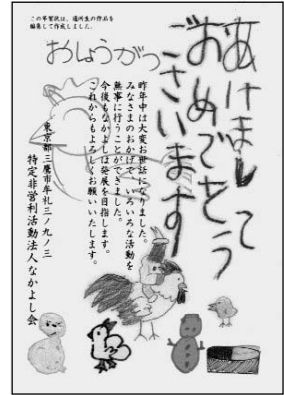 この年賀状は、通所生の作品を
編集して作成しました。
おしょうがつ
あけまして
おめでとう
ございます
昨年中は大変お世話になりました。
みなさまのおかげで、いろいろな活動を
無事に行うことができました。
今後もなかよしは発展を目指します。
これからもよろしくお願いいたします。
東京都三鷹市牟礼三ノ九ノ三
特定非営利活動法人なかよし会